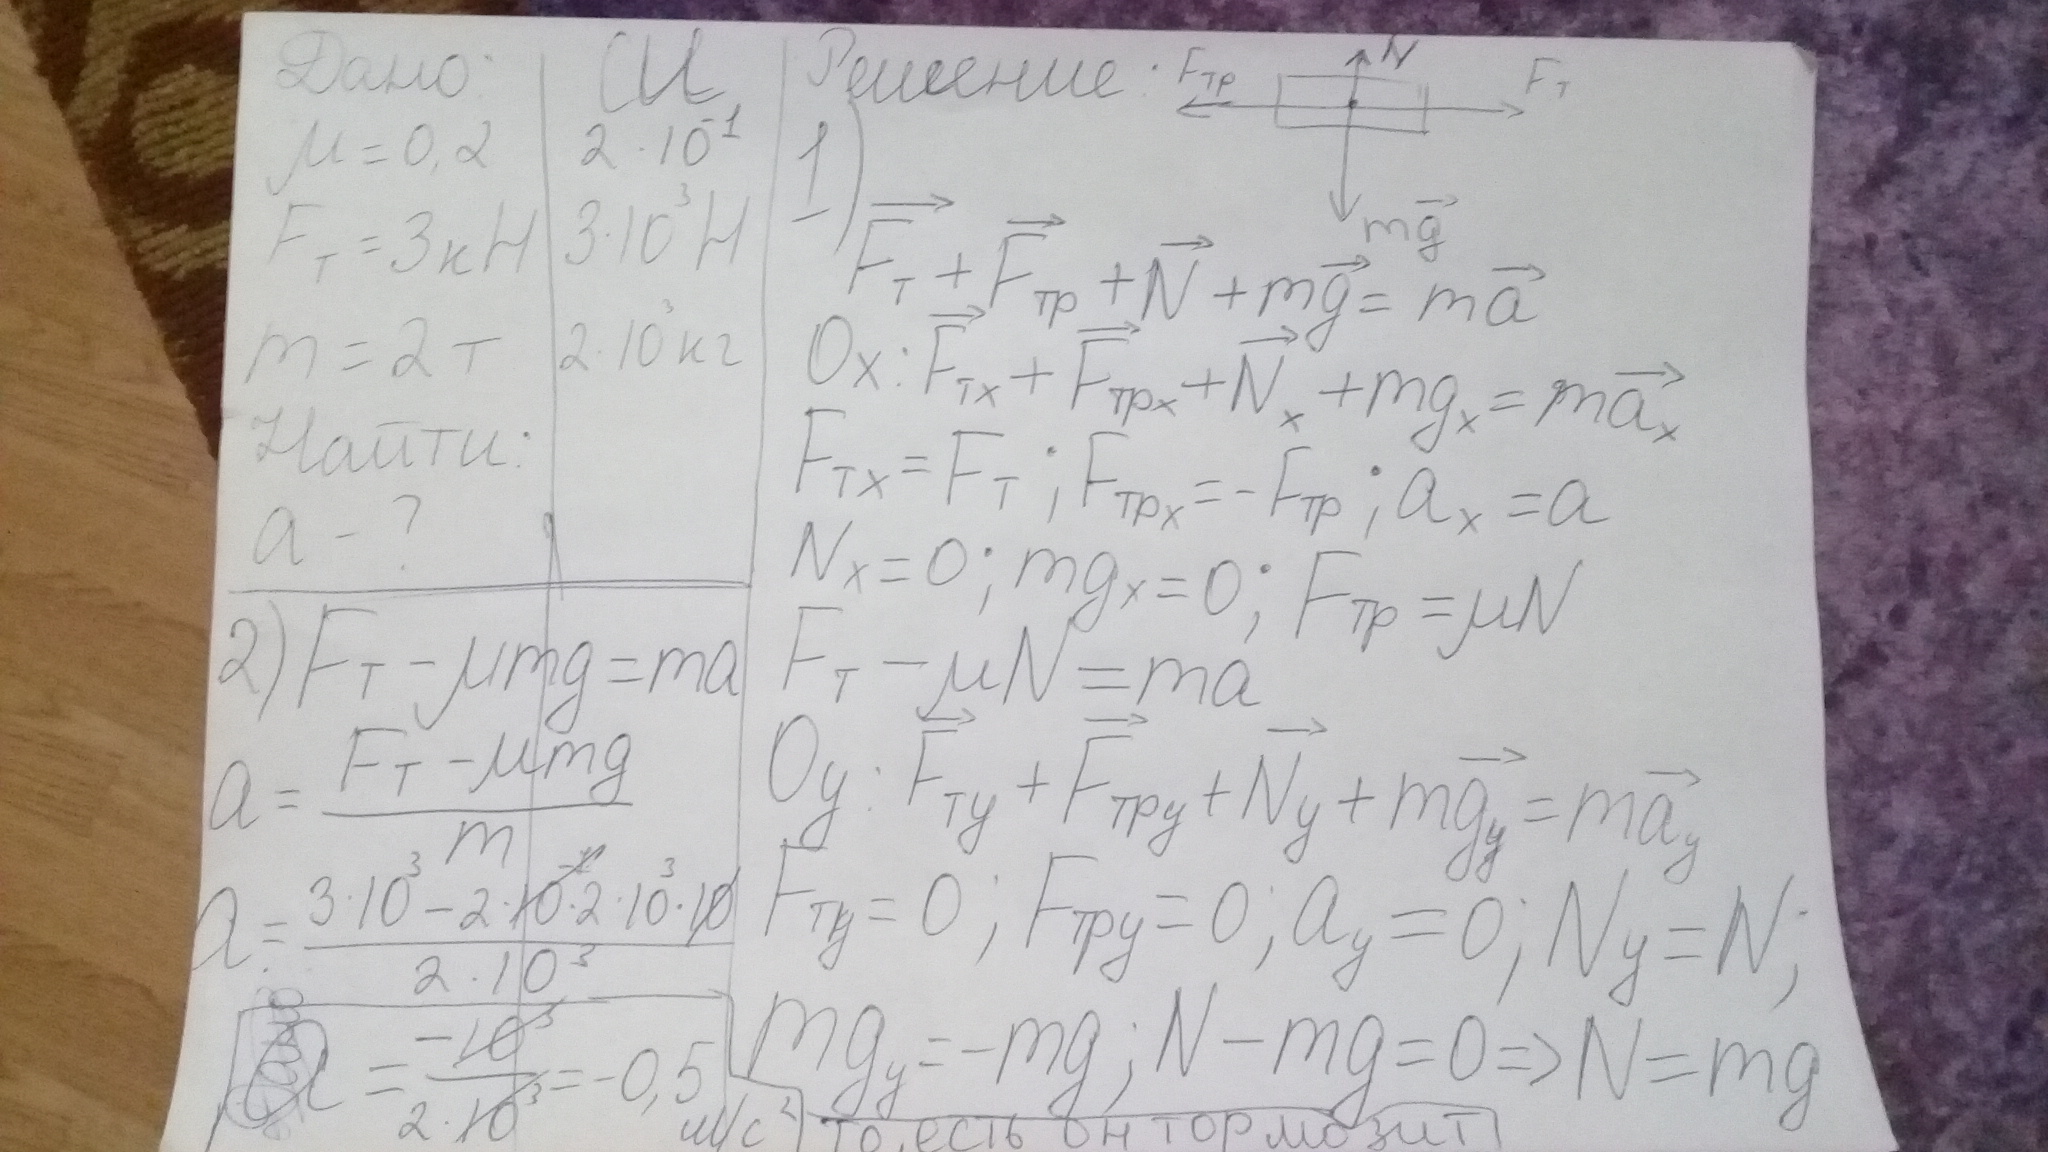 Дано:
μ = 0,2
Fт = 3кН
m = 2т
Найти:
a - ?
СИ
2·10⁻¹
3·10³Н
2·10³кг
Решение:
Fтр
N
mg
Fт
1) Fт + Fтр + N + mg = ma
Ox: Fтx + Fтрx + Nx + mgx = max
Fтx = Fт; Fтрx = -Fтр; ax = a
Nx = 0; mgx = 0; Fтр = μN
Fт - μN = ma
Oy: Fтy + Fтрy + Ny + mgy = may
Fтy = 0; Fтрy = 0; ay = 0; Ny = N;
mgy = -mg; N - mg = 0 => N = mg
2) Fт - μmg = ma
a = (Fт - μmg)/m
a = (3·10³ - 2·10⁻¹·2·10³·10)/(2·10³)
a = -10³/(2·10³) = -0,5 м/с²
то есть он тормозит